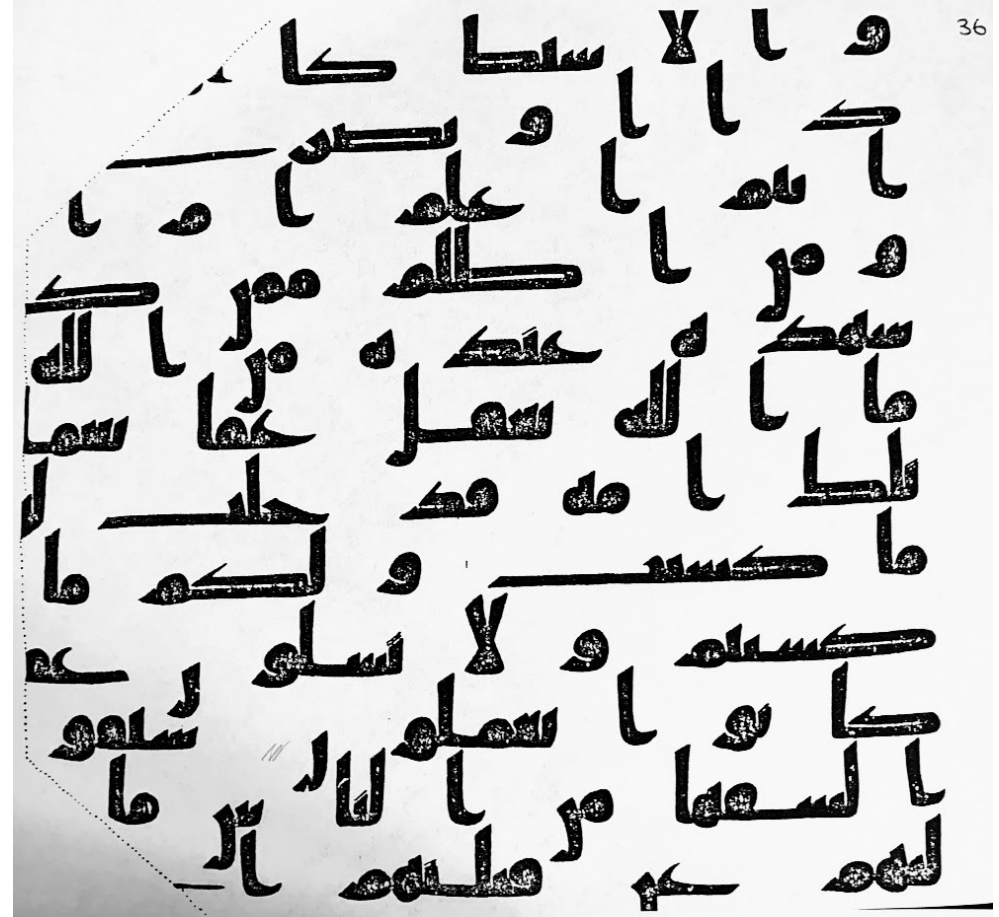 36
و الا سبط كا
د ا ا و نصرى
ا نتم ا علم ا م ا
و من ا ظلم ممن ك
شهدة عنده من الله
ما ا لله بغفل عما تعما
تلك ا مة قد خلت ل
ما كسبت و لكم ما
كسبتم و لا تسلو ن عم
كا نو ا يعملو ن سيقو
ا لسفها من ا لناس ما
ليهم عن قبلتهم ا